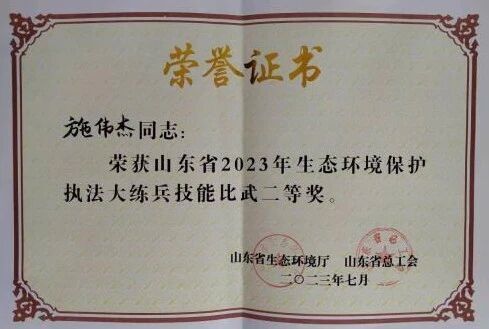 荣誉证书
施伟杰同志：
荣获山东省2023年生态环境保护
执法大练兵技能比武二等奖。
山东省生态环境厅 山东省总工会
二〇二三年七月